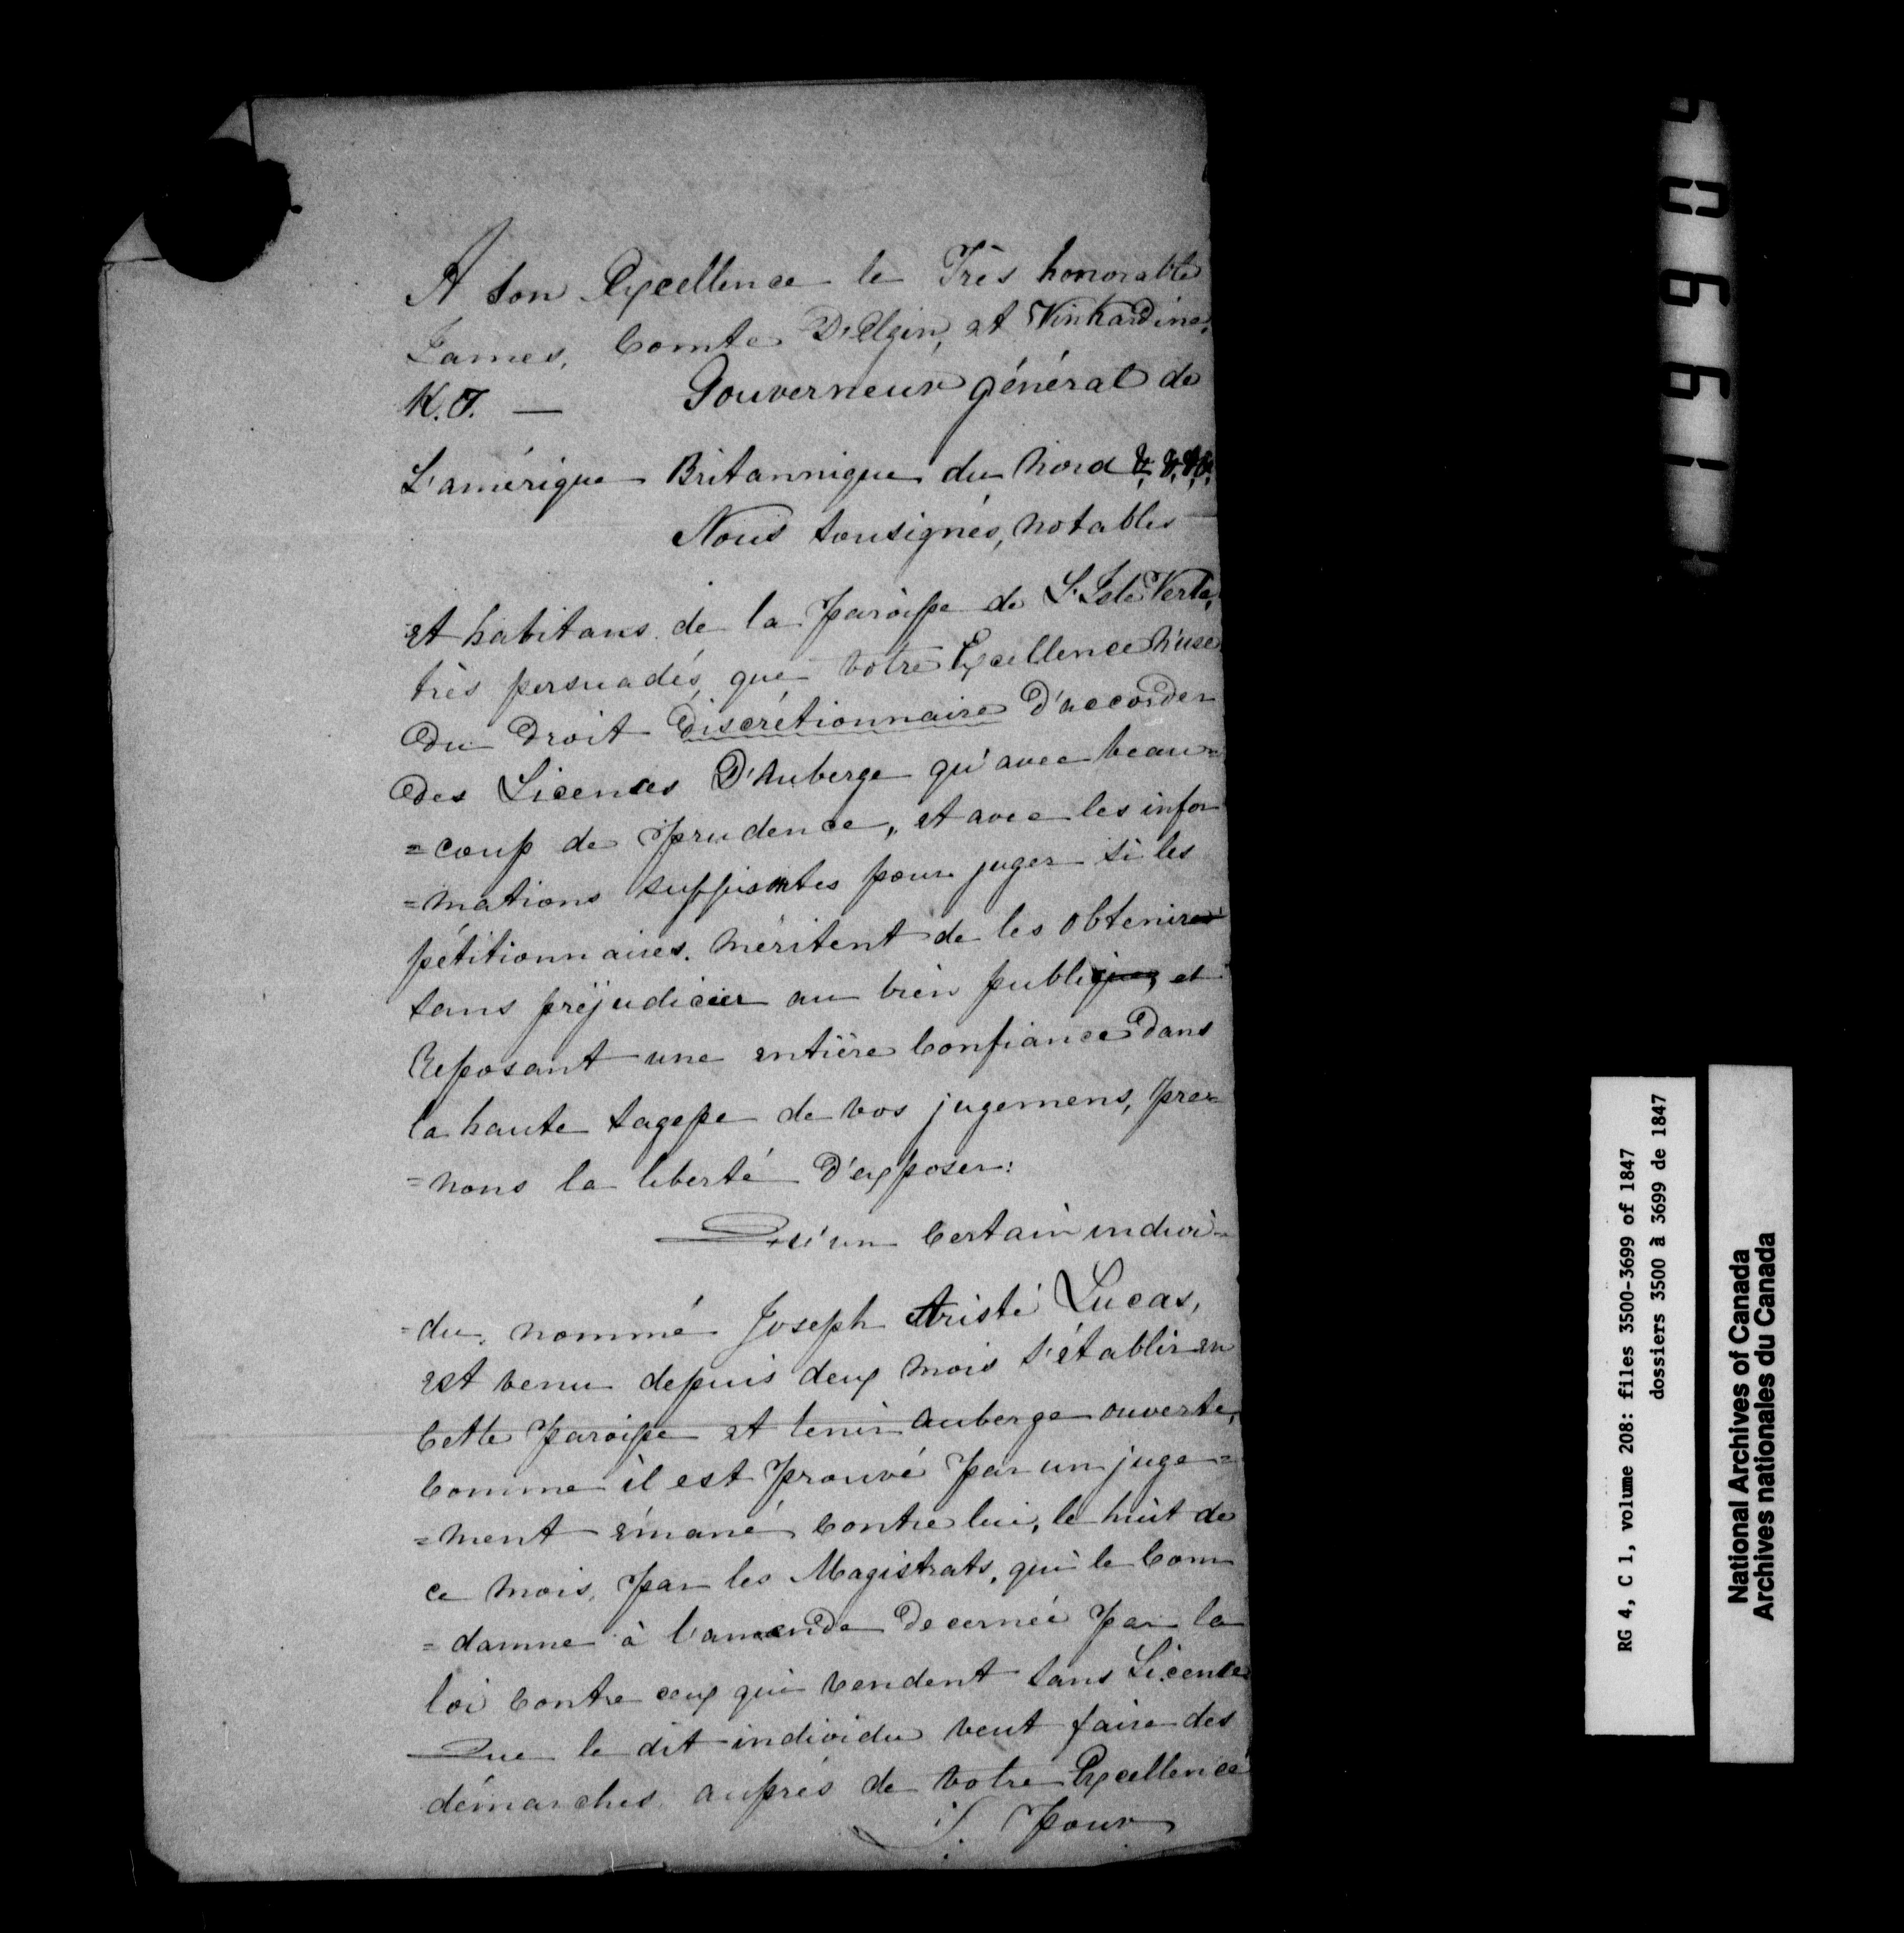 A Son Excellence le Très honorable
James, Comte D'Elgin, et Kinkardine,
K.T. — Gouverneur général de
L'amérique Britannique du Nord &. &. &c.
Nous sousignés, notables
et habitans de la Paroisse de L'Isle Verte,
très persuadés, que votre Excellence n'use
du droit discrétionnaire d'accorder
des Licences D'Auberge qu'avec beau=
=coup de prudence, et avec les infor
=mations suffisantes pour juger si les
pétitionnaires méritent de les obtenir
sans préjudicier au bien public, et
Reposant une entière confiance dans
la haute sagesse de vos jugemens, pre=
=nons la liberté d'exposer:
Qu'un certain indivi=
=du, nommé Joseph Aristé Lucas,
est venu depuis deux mois s'établir en
cette Paroisse et tenir auberge ouverte,
comme il est prouvé par un juge=
=ment émané contre lui, le huit de
ce mois, par les Magistrats, qui le Con
=damne à l'amende decernée par la
loi contre ceux qui vendent sans Licence
Que le dit individu veut faire des
démarches auprés de votre Excellence
Pour
RG 4, C 1, volume 208: files 3500-3699 of 1847
dossiers 3500 à 3699 de 1847
National Archives of Canada
Archives nationales du Canada